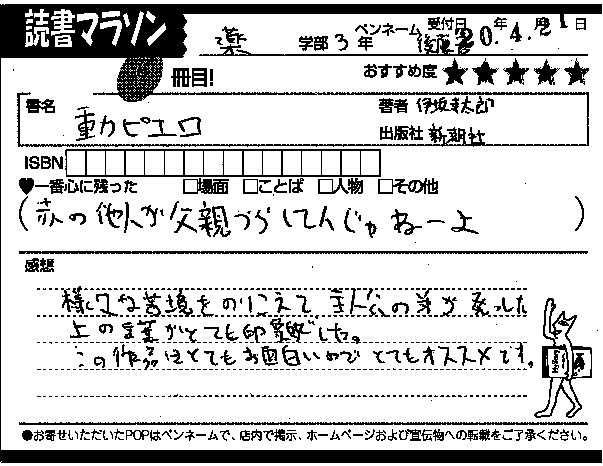 読書マラソン
冊目!
薬 学部 3 年
ペンネーム
受付日 20. 年 4. 月 21 日
おすすめ度 ★★★★★
書名 重力ピエロ
著者 伊坂幸太郎
出版社 新潮社
ISBN
♥一番心に残った □場面 □ことば □人物 □その他
(赤の他人が父親づらしてんじゃねーよ)
感想
様々な苦境をのりこえて、主人公の弟が発した
上の言葉がとても印象的でした。
この作品はとてもお面白いのでとてもオススメです。
●お寄せいただいたPOPはペンネームで、店内で掲示、ホームページおよび宣伝物への転載をご了承ください。